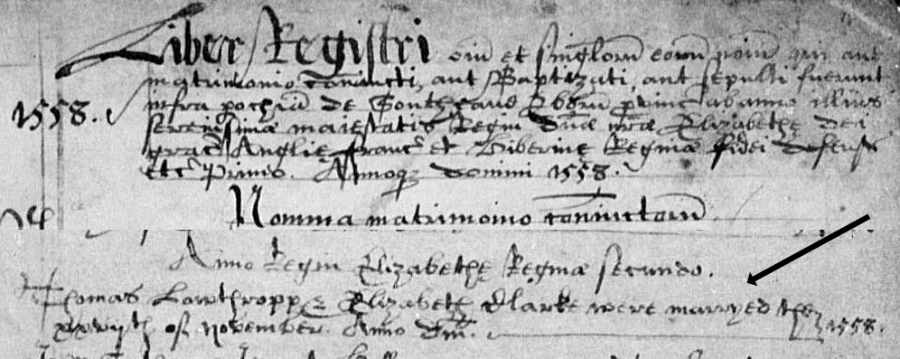 Liber Registri oīm et singlorū eorū noīm qui aut
matrimonio coniuncti, aut Baptizati, aut sepulti fuerunt
1558. infra pochiā de ab anno illius
serenissimæ maiestatis Regin Dñæ nr̄æ Elizabethe dei
grac Anglie franc et Hibernie Reginæ fidei defens
etc Primo. Annoq̨ domini 1558.
Nomina matrimonio coniunctorū
Anno Regin Elizabethe Reginæ secundo.
Thomas Lowthropp & Elizabeth Clarke were marryed the
xxvijth of November. Anno Dm̄. 1558.